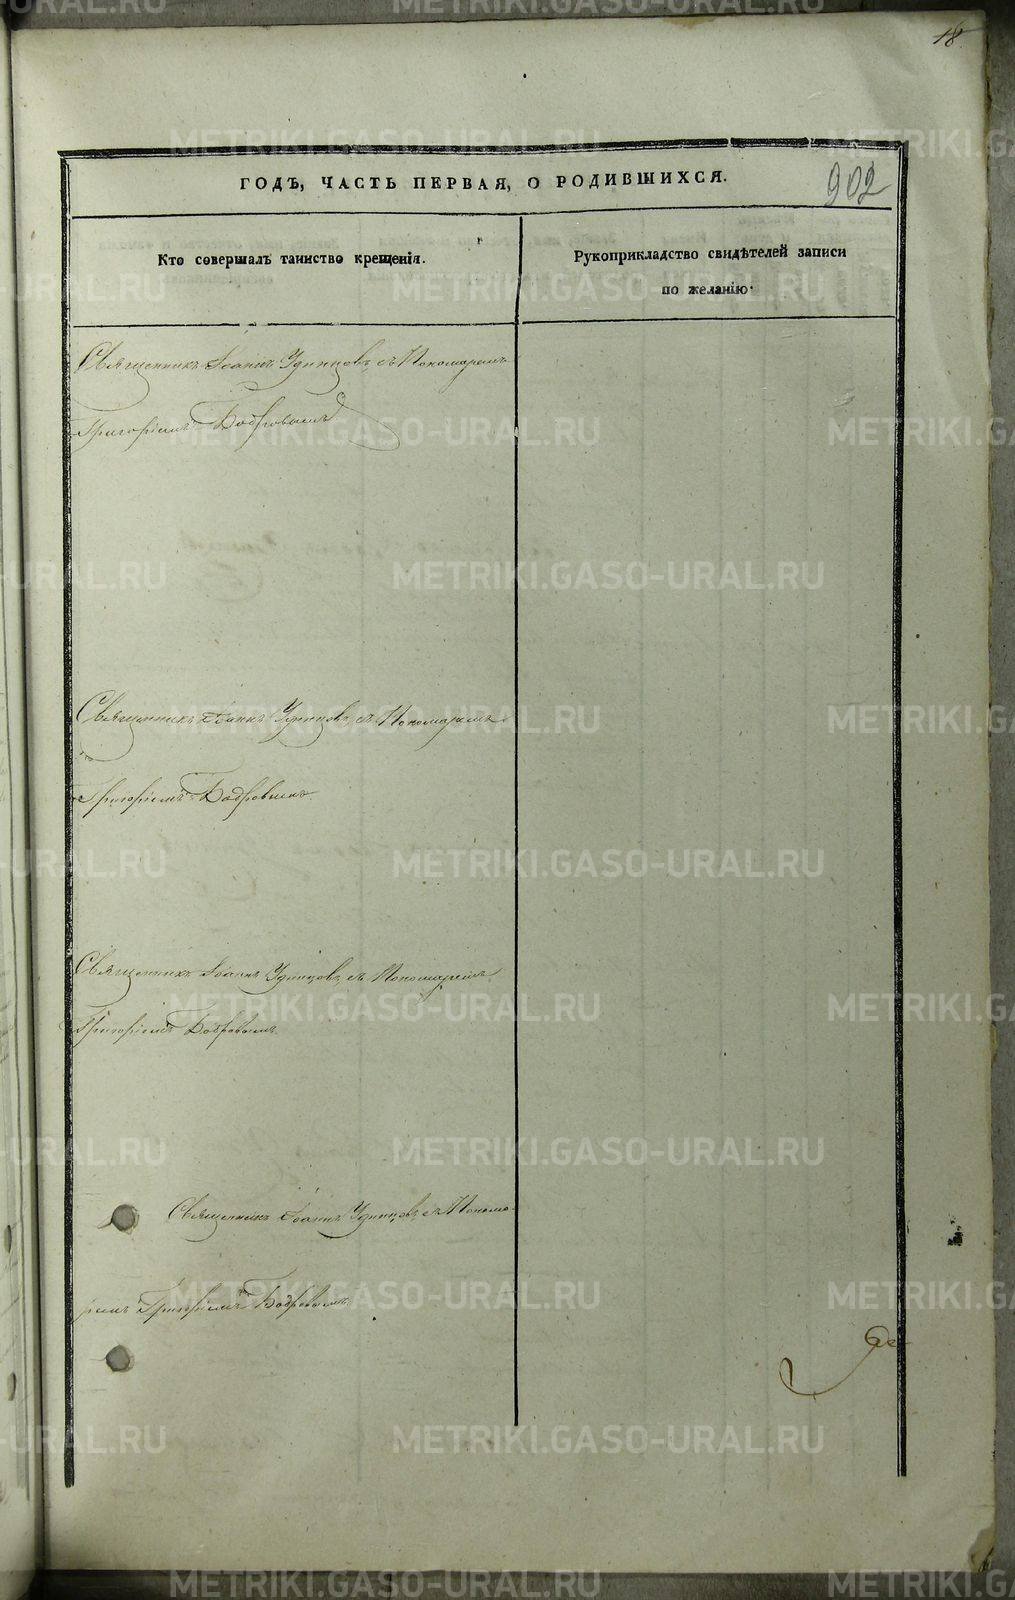 18.
ГОДЪ, ЧАСТЬ ПЕРВАЯ, О РОДИВШИХСЯ.
902
Кто совершалъ таинство крещенія.
Рукоприкладство свидѣтелей записи
по желанію.
Священникъ Іоаннъ Удинцовъ съ Пономаремъ
Григоріемъ Бобровымъ
Священникъ Іоаннъ Удинцовъ съ Пономаремъ
Григоріемъ Бобровымъ.
Священникъ Іоаннъ Удинцовъ съ Пономаремъ
Григоріемъ Бобровымъ.
Священникъ Іоаннъ Удинцовъ съ Понома-
ремъ Григоріемъ Бобровымъ.
METRIKI.GASO-URAL.RU